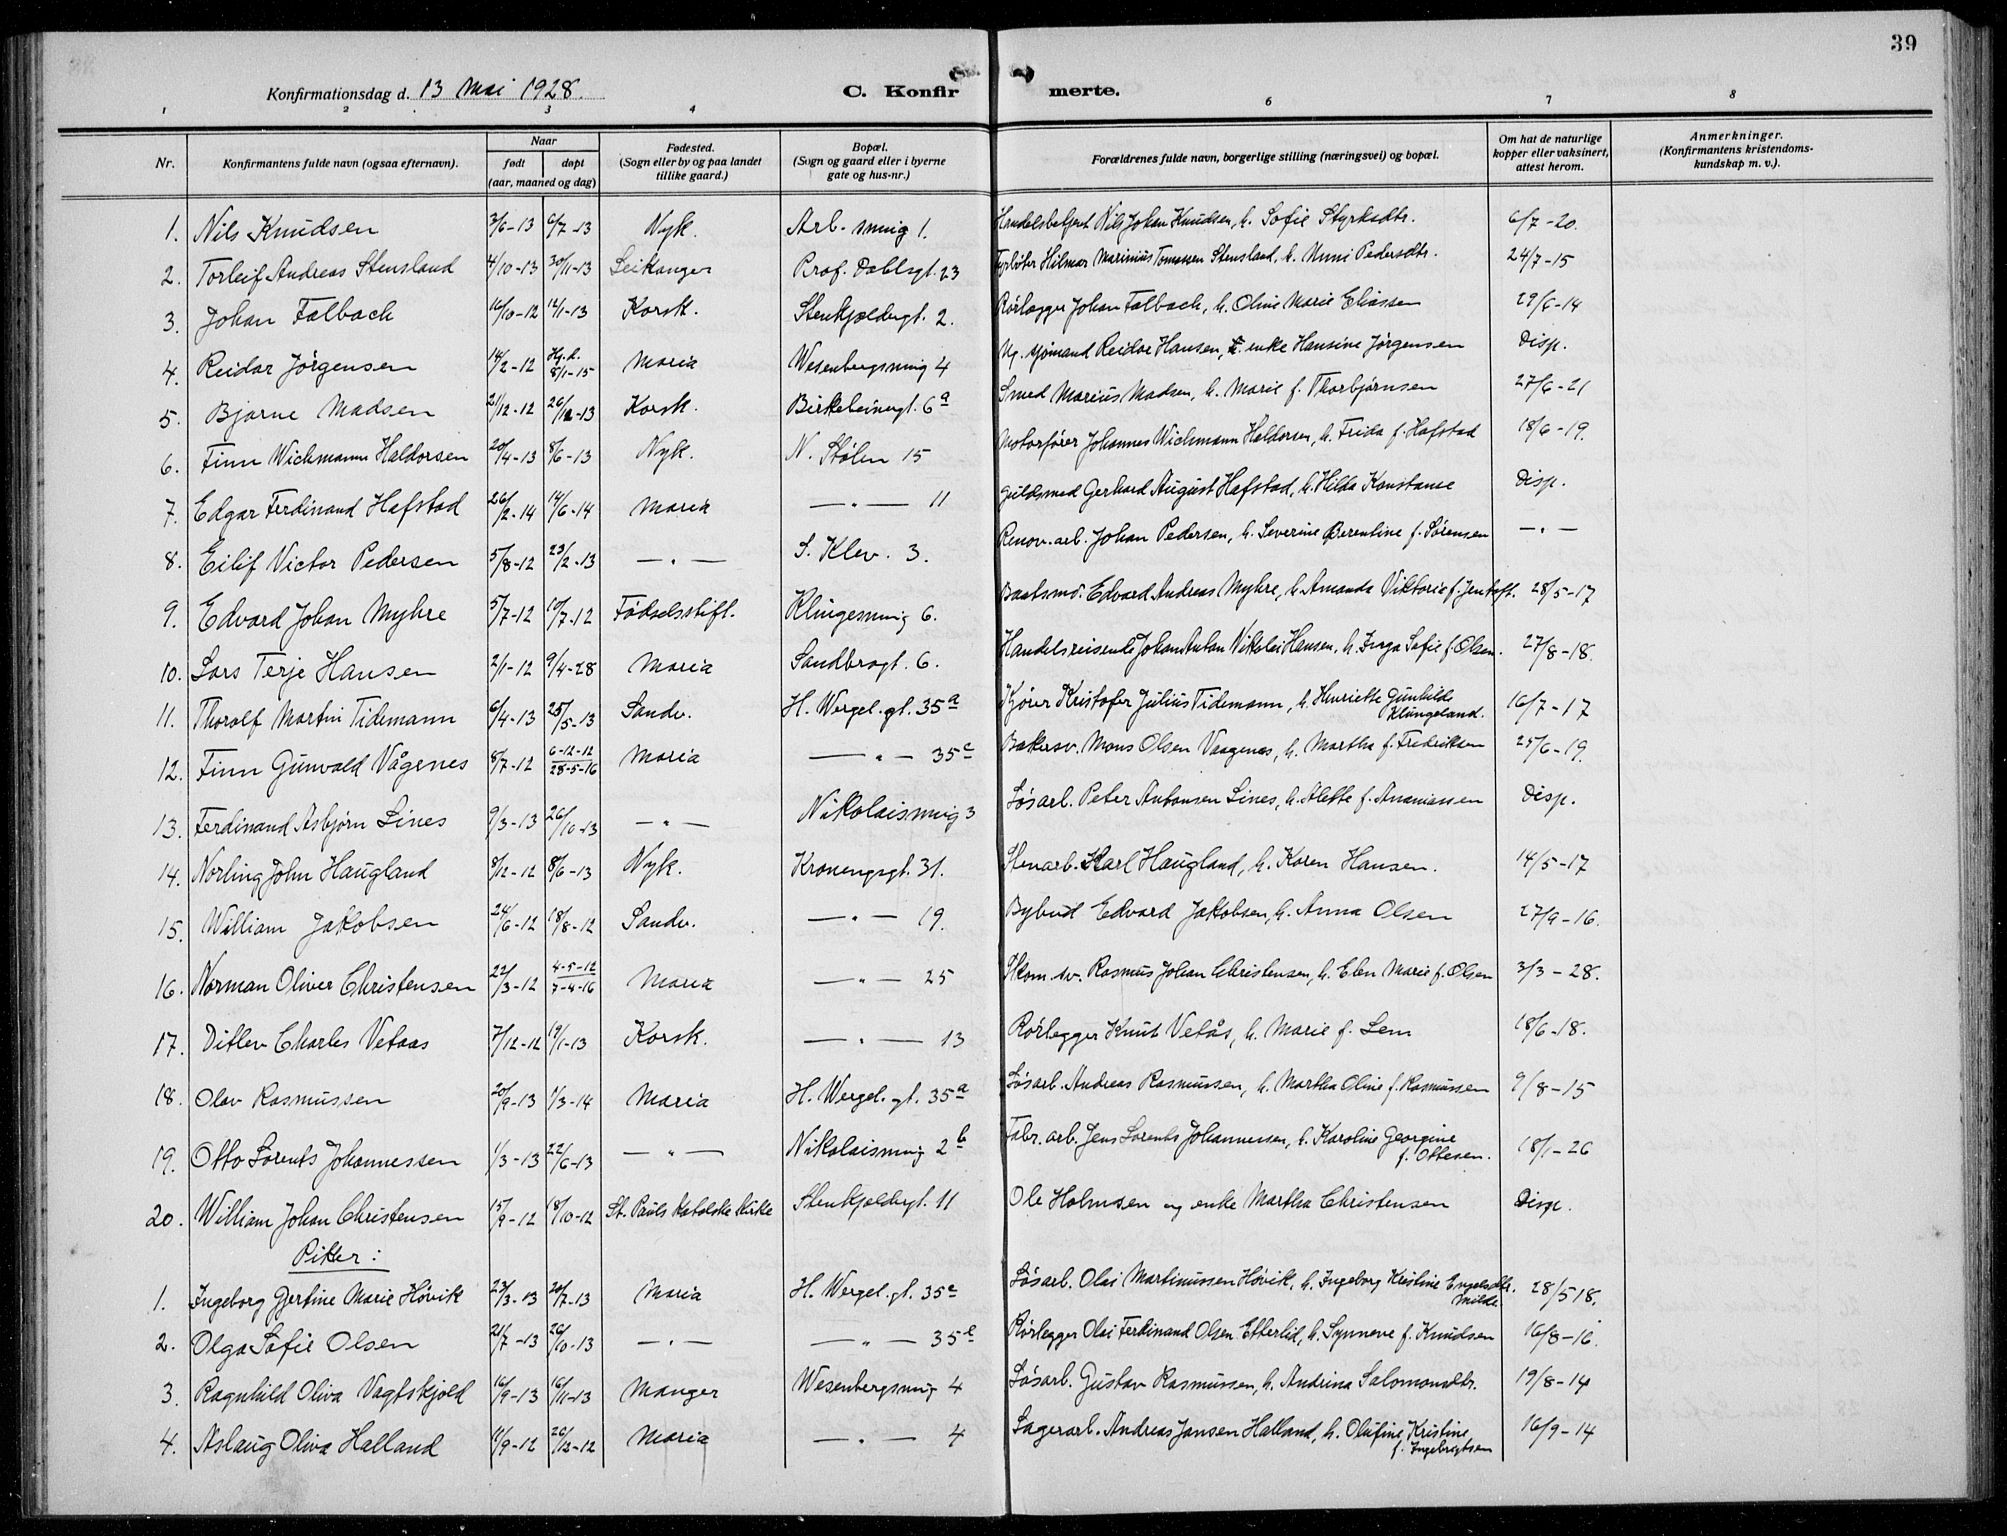 39
Konfirmationsdag d. 13 Mai 1928.
C. Konfirmerte.
1 2 3 4 6 7 8
Nr. Konfirmantens fulde navn (ogsaa efternavn). Naar født døpt (aar, maaned og dag) Fødested. (Sogn eller by og paa landet tillike gaard.) Bopæl. (Sogn og gaard eller i byerne gate og hus-nr.) Forældrenes fulde navn, borgerlige stilling (næringsvei) og bopæl. Om hat de naturlige kopper eller vaksinert, attest herom. Anmerkninger. (Konfirmantens kristendoms-kundskap m. v.).
1. Nils Knudsen 3/6-13 6/7-13 Nyk. Arb. smug 1. Handelsbetjent Nils Johan Knudsen, h. Sofie Styrksdtr. 6/7-20.
2. Torleif Andreas Stensland 4/10-13 30/11-13 Leikanger Prof. Dahlsgt. 23 Fyrbøter Hilmar Marinius Tomassen Stensland, h. Unni Pedersdtr. 24/7-15
3. Johan Falbach 16/10-12 12/1-13 Korsk. Stenkjeldergt. 2. Rørlægger Johan Falbach, h. Oline Marie Eliassen 29/6-14
4. Reidar Jørgensen 14/2-12 Hj. d. 8/1-15 Maria Wesenbergsmug 4 Ug. sjømand Reidar Hansen, enke Hansine Jørgensen Disp.
5. Bjarne Madsen 21/12-12 26/12-13 Korsk. Birkebeinergt. 6a Smed Marius Madsen, h. Marie f. Thorbjørnsen 27/6-21
6. Finn Wichmann Haldorsen 20/4-13 8/6-13 Nyk. N. Stølen 15 Motorfører Johannes Wichmann Haldorsen, h. Frida f. Hafstad 18/6-19.
7. Edgar Ferdinand Hafstad 26/2-14 14/6-14 Maria —"— 11 Guldsmed Gerhard August Hafstad, h. Hilda Konstanse Disp.
8. Eilif Victor Pedersen 5/8-12 23/2-13 —"— S. Klev. 3. Renov. arb. Johan Pedersen, h. Severine Berentine f. Sørensen —"—
9. Edvard Johan Myhre 5/7-12 10/7-12 Fødselsstift. Klingesmug 6. Baatsmd. Edvard Andreas Myhre, h. Amanda Viktorie f. Jentoft. 28/5-17
10. Lars Terje Hansen 2/1-12 9/4-28 Maria Sandbrogt. 6. Handelsreisende Johan Anton Nikolai Hansen, h. Inga Sofie f. Olsen. 27/8-18.
11. Thorolf Martin Tidemann 6/4-13 25/5-13 Sandv. H. Wergel. gt. 35a Kjører Kristofer Julius Tidemann, h. Henriette Gunhilde Klungeland. 16/7-17
12. Finn Gunvald Vågenes 8/7-12 6-12-12 28-5-16 Maria —"— 35c Bakersv. Mons Olsen Vaagenes, h. Martha f. Fredriksen 25/6-19.
13. Ferdinand Asbjørn Lines 9/3-13 26/10-13 —"— Nikolaismug 3 Løsarb. Peter Antonsen Lines, h. Alette f. Ananiassen Disp.
14. Norling John Haugland 8/12-12 8/6-13 Nyk. Kronengsgt. 31. Stenarb. Karl Haugland, h. Karen Hansen. 14/5-17
15. William Jakobsen 24/6-12 18/8-12 Sandv. —"— 19. Bybud Edvard Jakobsen, h. Anna Olsen 27/9-16.
16. Norman Oliver Christensen 22/3-12 4-5-12 7-4-16 Maria —"— 25 Skom. sv. Rasmus Johan Christensen, h. Elen Marie f. Olsen 3/3-28.
17. Ditlev Charles Vetaas 7/12-12 19/1-13 Korsk. —"— 13 Rørlegger Knut Vetås, h. Marie f. Lem 18/6-18.
18. Olav Rasmussen 20/9-13 1/3-14 Maria H. Wergel. gt. 35a Løsarb. Andreas Rasmussen, h. Martha Oline f. Rasmussen 9/8-15
19. Otto Lorents Johannessen 1/3-13 22/6-13 —"— Nikolaismug 2b Fabr. arb. Jens Lorents Johannessen, h. Karoline Georgine f. Ottesen. 18/1-26
20. William Johan Christensen 15/9-12 18/10-12 St. Pauls Katolske Kirke Stenkjeldergt. 11 Ole Holmsen og enke Martha Christensen Disp.
Piker:
1. Ingeborg Gjertine Marie Høvik 23/3-13 20/7-13 Maria H. Wergel. gt. 35c Løsarb. Olai Martinussen Høvik, h. Ingeborg Kristine Engelsdtr. Milde. 28/5 18.
2. Olga Sofie Olsen 21/7-13 26/10-13 —"— —"— 35e Rørlegger Olai Ferdinand Olsen Etterlid, h. Synneve f. Knudsen 16/8-16.
3. Ragnhild Oliva Vagtskjold 16/9-13 16/11-13 Manger Wesenbergsmug 4 Løsarb. Gustav Rasmussen, h. Andrina Salomonsdtr. 19/8-14
4. Aslaug Oliva Halland 11/9-12 26/12-12 Maria —"— 4 Lagerarb. Andreas Jansen Halland, h. Olufine Kristine f. Ingebrigtsen 16/9-14